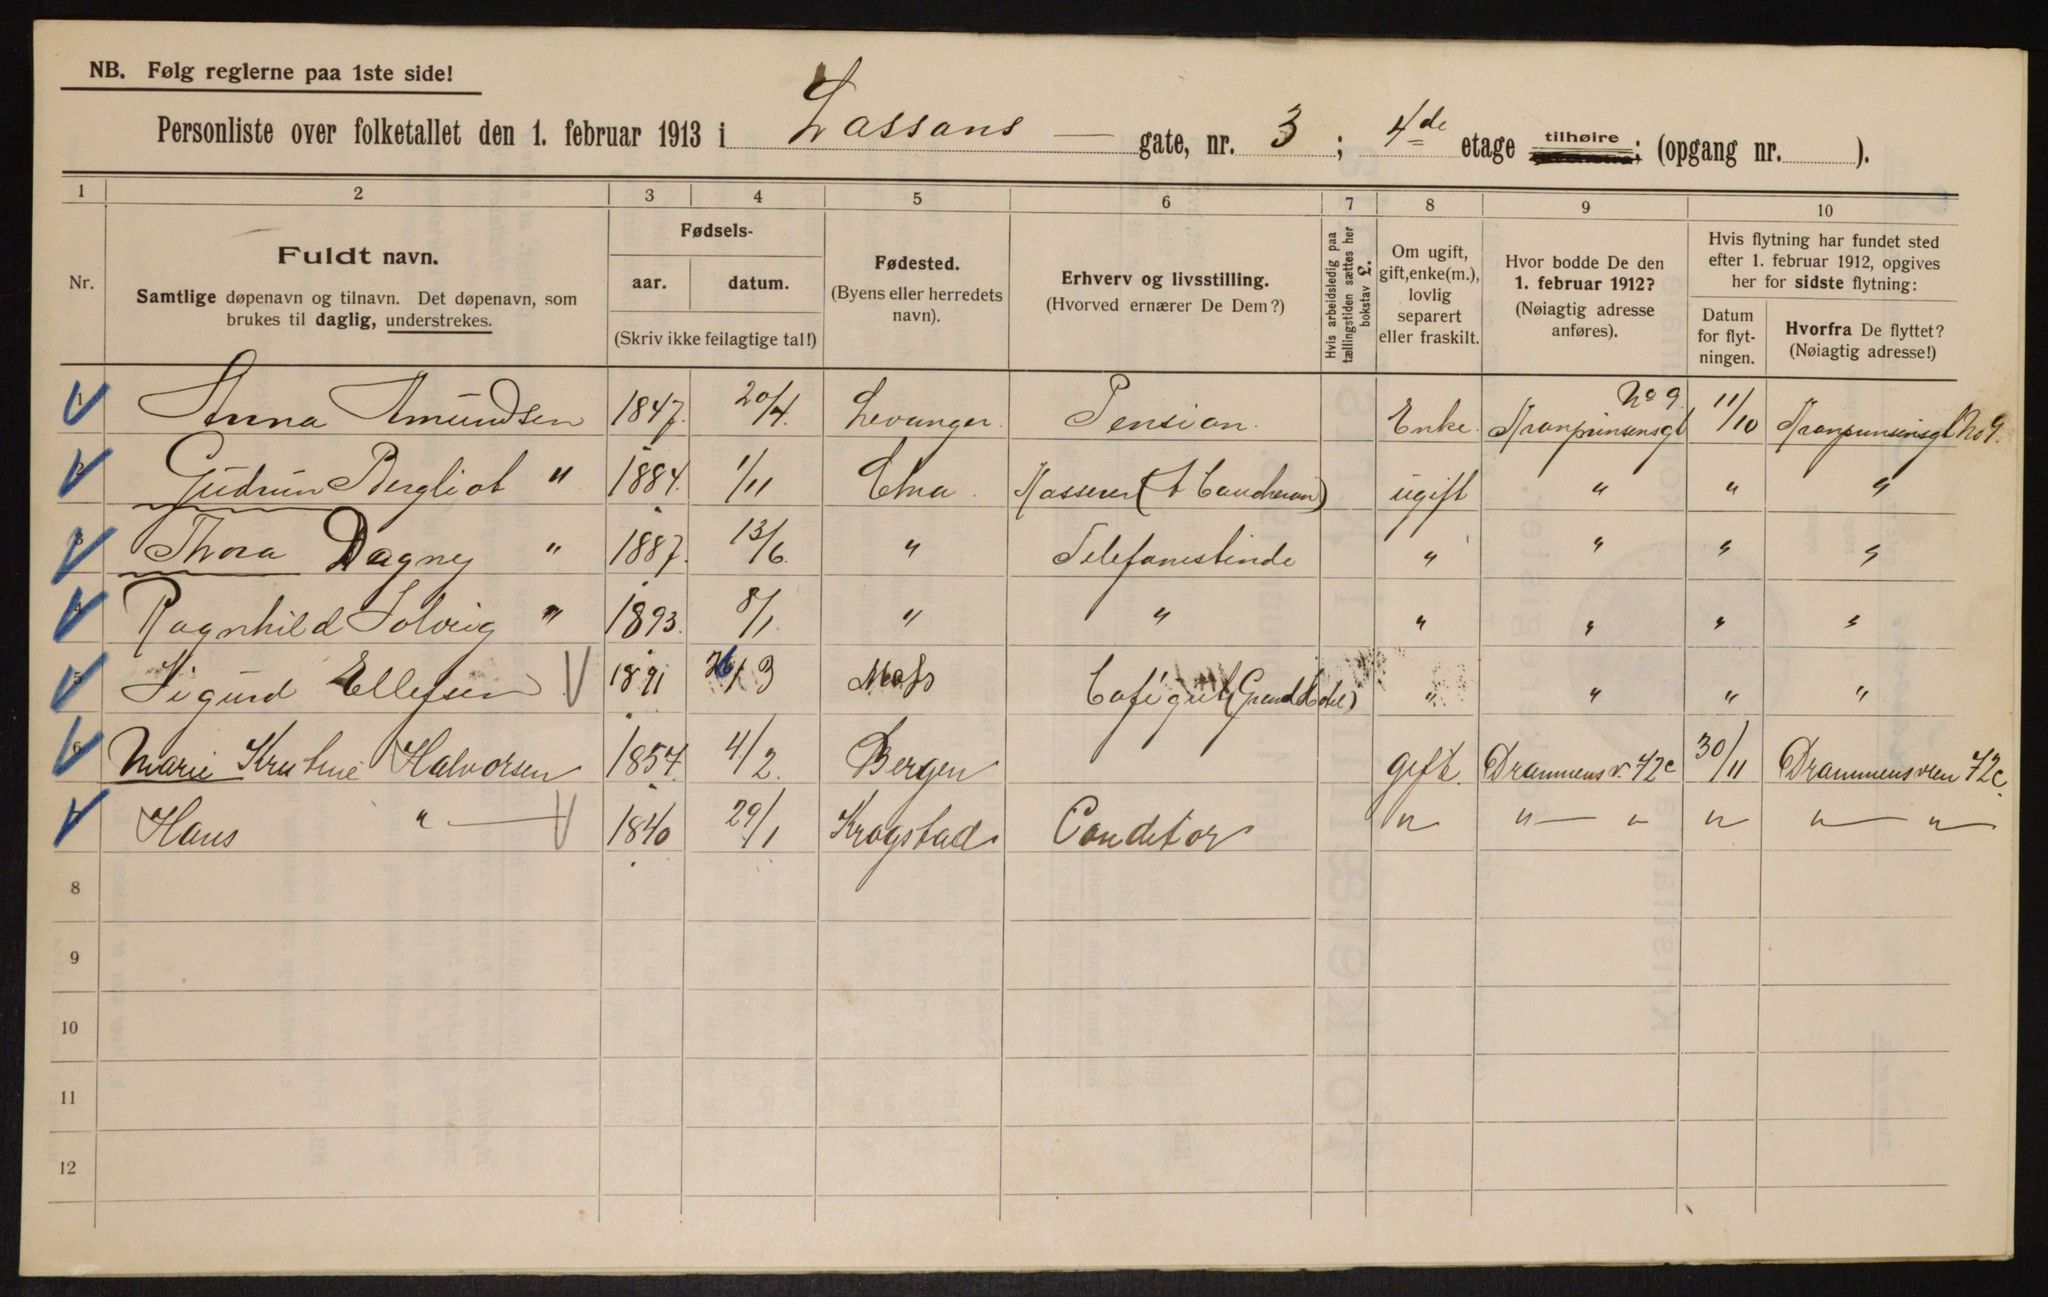 NB. Følg reglerne paa 1ste side!
Personliste over folketallet den 1. februar 1913 i Lassons — gate, nr. 3 ; 4de etage tilhøire; (opgang nr. ).
1 2 3 4 5 6 7 8 9 10
Nr.
Fuldt navn.
Samtlige døpenavn og tilnavn. Det døpenavn, som
brukes til daglig, understrekes.
Fødsels-
aar. datum.
(Skriv ikke feilagtige tal!)
Fødested.
(Byens eller herredets
navn).
Erhverv og livsstilling.
(Hvorved ernærer De Dem?)
Hvis arbeidsledig paa
tællingstiden sættes her
bokstav £.
Om ugift,
gift, enke(m.),
lovlig
separert
eller fraskilt.
Hvor bodde De den
1. februar 1912?
(Nøiagtig adresse
anføres).
Hvis flytning har fundet sted
efter 1. februar 1912, opgives
her for sidste flytning:
Datum
for flyt-
ningen.
Hvorfra De flyttet?
(Nøiagtig adresse!)
1 Anna Amundsen 1847. 20/4. Levanger. Pension. Enke. Kronprinsensgt No 9. 11/10 Kronprinsensgt No 9.
2 Gudrun Bergliot " 1884. 1/11 Chra. Kasserer ugift " " "
3 Thora Dagny " 1887. 13/6. " Telefonistinde " " " "
4 Ragnhild Solveig " 1893. 8/1. " " " " " "
5 Sigurd Ellefsen 1891 /3 Moss (Grand Hotel) " " " "
6 Marie Kristine Halvorsen 1857. 4/2. Bergen gift. Drammensv. 72c 30/11 Drammensveien 72c.
Hans " — 1840 29/1 Krogstad Conditor " " — " " " — "
8
9
10
11
12